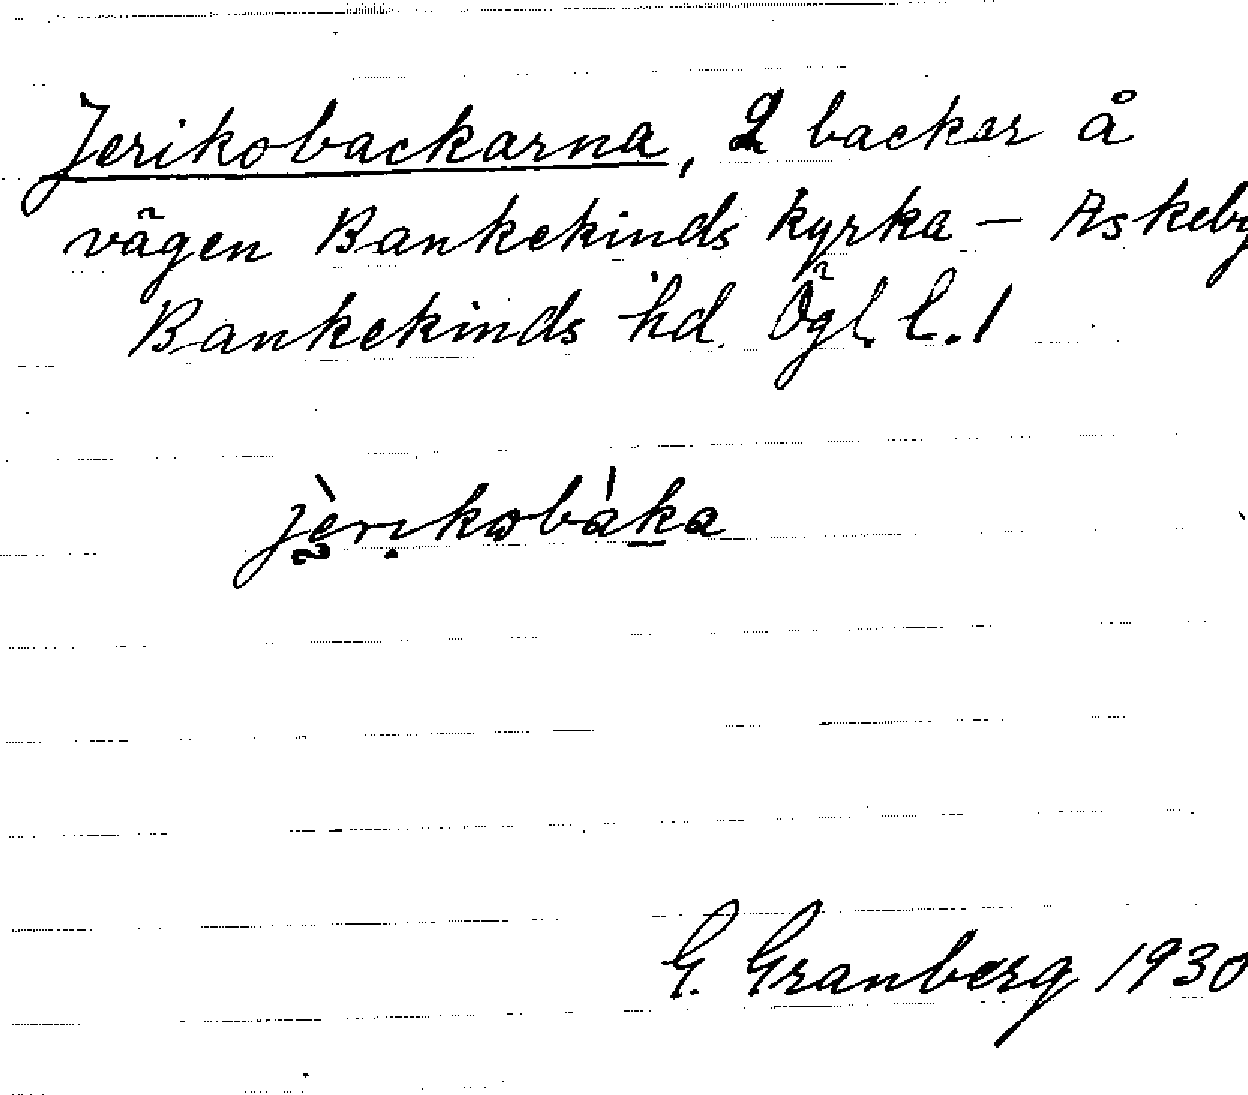 Jerikobackarna, 2 backar å
vägen Bankekinds kyrka – Askeby
Bankekinds hd. Ögl. l.
jèrikobàka
G. Granberg 1930